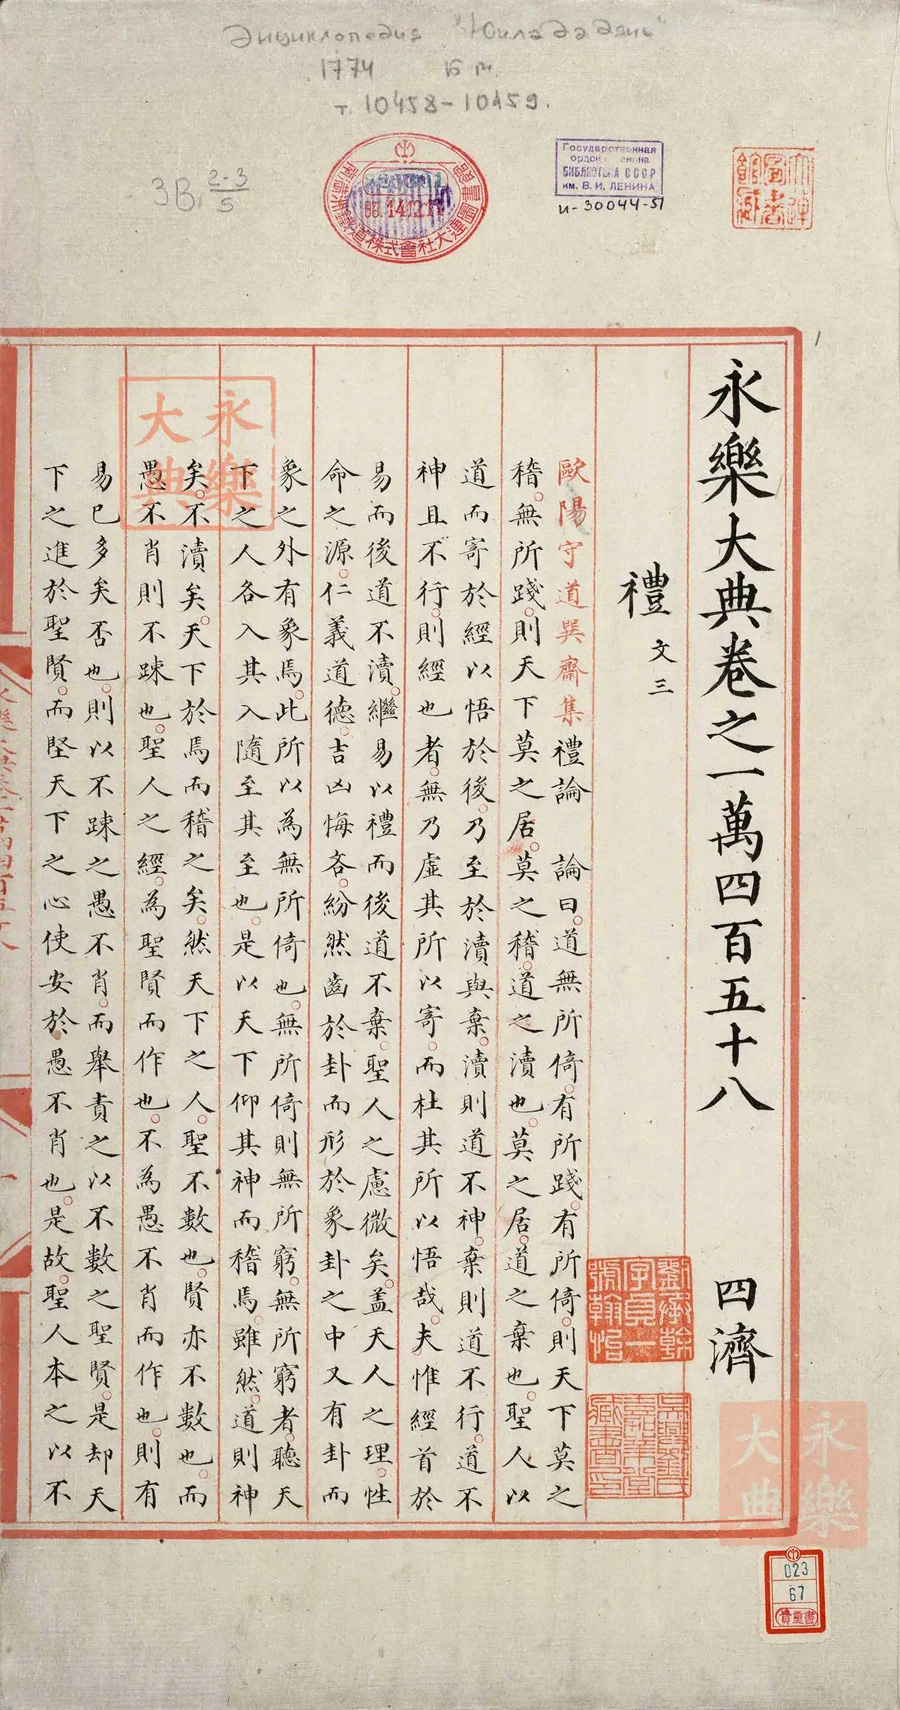 Энциклопедия "Юнлэ дадянь"
1774 б м.
т. 10458-10459.
3В, 2-3/5
南滿洲鐵道株式會社大連圖書館
Государственная
БИБЛИОТЕКА СССР
им. В. И. ЛЕНИНА
И-30044-51
1
永樂大典卷之一萬四百五十八 四濟
禮 文三
歐陽守道巽齋集禮論 論曰道無所倚有所踐有所倚則天下莫之
稽無所踐則天下莫之居莫之稽道之瀆也莫之居道之棄也聖人以
道而寄於經以悟於後乃至於瀆與棄瀆則道不神棄則道不行道不
神且不行則經也者無乃虛其所以寄而杜其所以悟哉夫惟經首於
易而後道不瀆繼易以禮而後道不棄聖人之慮微矣蓋天人之理性
命之源仁義道德吉凶悔吝紛然齒於卦而形於象卦之中又有卦而
象之外有象焉此所以為無所倚也無所倚則無所窮無所窮者聽天
下之人各入其入隨至其至也是以天下仰其神而稽焉雖然道則神
矣不瀆矣天下於焉而稽之矣然天下之人聖不數也賢亦不數也而
愚不肖則不踈也聖人之經為聖賢而作也不為愚不肖而作也則有
易已多矣否也則以不踈之愚不肖而舉責之以不數之聖賢是却天
下之進於聖賢而堅天下之心使安於愚不肖也是故聖人本之以不
永樂
大典
劉承幹
字貞一
號翰怡
永樂
大典
023
67
貴重書